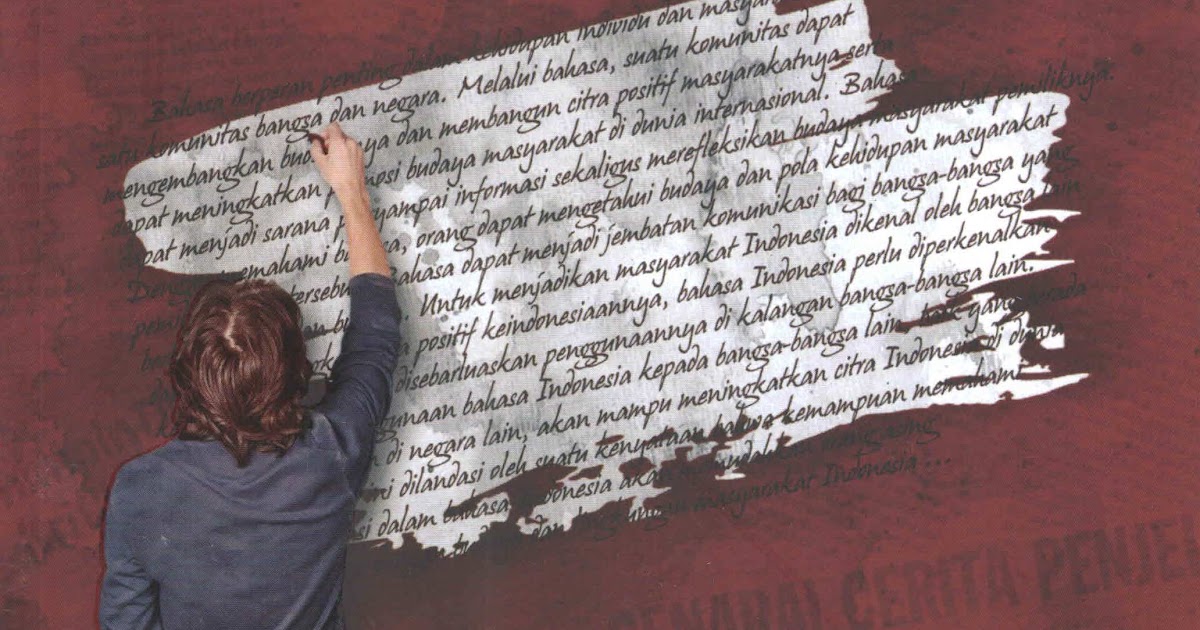 Bahasa berperan penting dalam kehidupan individu dan
satu komunitas bangsa dan negara. Melalui bahasa, suatu komunitas dapat
mengembangkan dan membangun citra positif masyarakatnya serta
dapat meningkatkan budaya masyarakat di dunia internasional. Bahasa
dapat menjadi sarana informasi sekaligus merefleksikan budaya masyarakat pemiliknya.
orang dapat mengetahui budaya dan pola kehidupan masyarakat
Bahasa dapat menjadi jembatan komunikasi bagi bangsa-bangsa yang
Untuk menjadikan masyarakat Indonesia dikenal oleh bangsa lain
positif keindonesiaannya, bahasa Indonesia perlu diperkenalkan
disebarluaskan penggunaannya di kalangan bangsa-bangsa lain.
bahasa Indonesia kepada bangsa-bangsa lain, baik yang berada
di negara lain, akan mampu meningkatkan citra Indonesia di dunia
ini dilandasi oleh suatu kenyataan bahwa kemampuan memahami
dalam bahasa Indonesia akan memudahkan orang asing
dan masyarakat Indonesia ...
CERITA PENJE